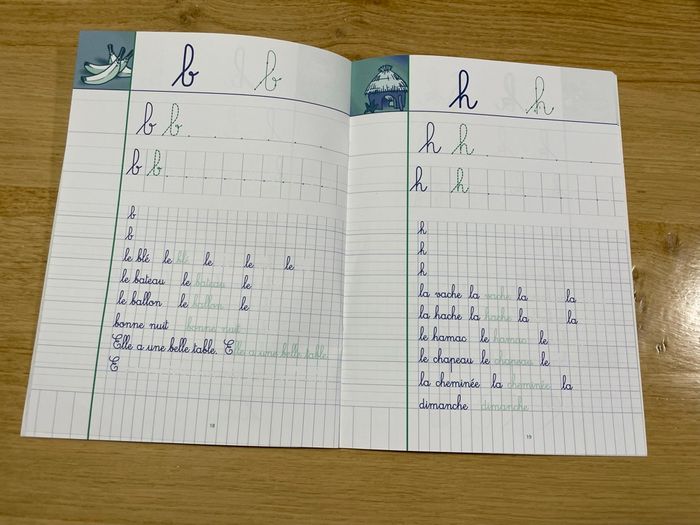 b b
b b
b b
b
b
le blé le blé le le le
le bateau le bateau le
le ballon le ballon le
bonne nuit bonne nuit
Elle a une belle table. Elle a une belle table.
E
18
h h
h h
h h
h
h
h
la vache la vache la la
la hache la hache la la
le hamac le hamac le
le chapeau le chapeau le
la cheminée la cheminée la
dimanche dimanche
19